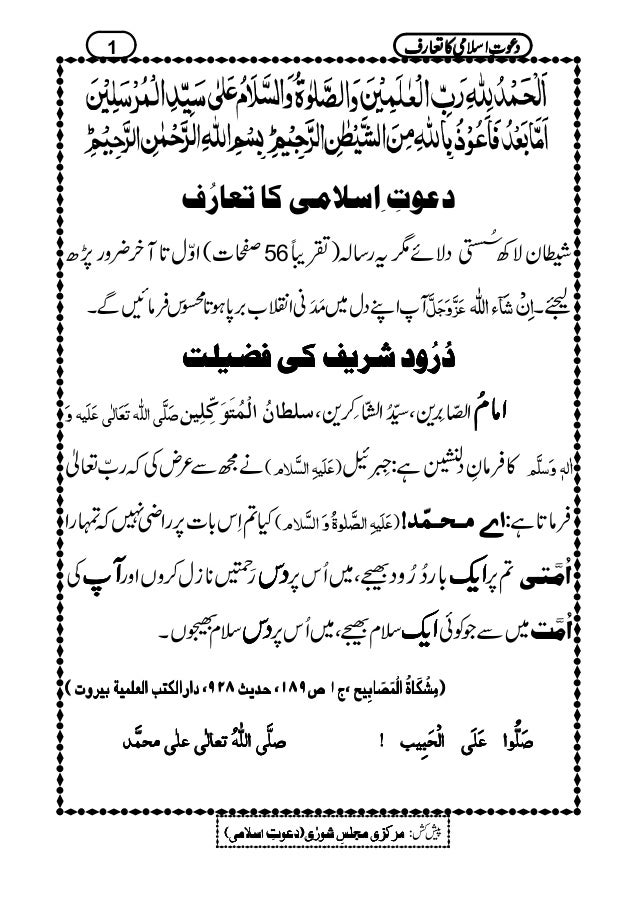 دعوتِ اسلامی کا تعارف 1
اَلْحَمْدُ لِلّٰهِ رَبِّ الْعٰلَمِيْنَ وَالصَّلٰوةُ وَالسَّلَامُ عَلٰى سَيِّدِ الْمُرْسَلِيْنَ
اَمَّا بَعْدُ فَاَعُوْذُ بِاللّٰهِ مِنَ الشَّيْطٰنِ الرَّجِيْمِ ؕ بِسْمِ اللّٰهِ الرَّحْمٰنِ الرَّحِيْمِ ؕ
دعوتِ اسلامی کا تعارُف
شیطان لاکھ سُستی دلائے مگر یہ رسالہ (تقریباً 56 صفحات) اوّل تا آخر ضرور پڑھ
لیجئے۔ اِنْ شَآء اللّٰه عَزَّوَجَلَّ آپ اپنے دل میں مَدَنی انقلاب برپا ہوتا محسوس فرمائیں گے۔
دُرُود شریف کی فضیلت
امامُ الصّابِرین، سیِّدُ الشّاکِرین، سلطانُ الْمُتَوَکِّلین صَلَّی اللّٰه تَعَالٰی عَلَیه وَ
اٰلهٖ وَسَلَّم کا فرمانِ دلنشین ہے: جِبرئیل (عَلَیْهِ السَّلام) نے مجھ سے عرض کی کہ ربّ تعالیٰ
فرماتا ہے: اے محمّد! (عَلَیْهِ الصَّلٰوۃُ وَ السَّلام) کیا تم اِس بات پر راضی نہیں کہ تمہارا
اُمَّتی تم پر ایک بار دُرُود بھیجے، میں اُس پر دس رَحمتیں نازل کروں اور آپ کی
اُمَّت میں سے جو کوئی ایک سلام بھیجے، میں اُس پر دس سلام بھیجوں۔
(مِشْکَاۃُ الْمَصَابِیح ،ج۱ ص۱۸۹، حدیث ۹۲۸، دارالکتب العلمیة بیروت)
صَلُّوا عَلَی الْحَبِیب ! صلَّی اللّٰهُ تعالٰی علٰی محمَّد
پیش کش: مرکزی مجلسِ شورٰی (دعوتِ اسلامی)